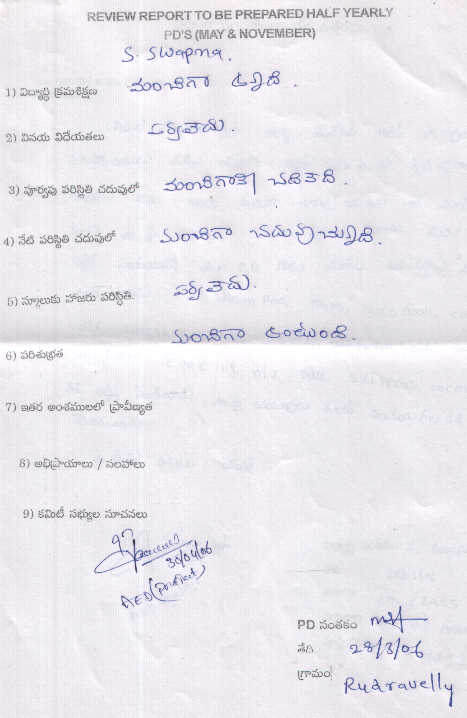 REVIEW REPORT TO BE PREPARED HALF YEARLY
PD'S (MAY & NOVEMBER)
S. Swapna.
1) విద్యార్థి క్రమశిక్షణ మంచిగా ఉన్నది.
2) వినయ విధేయతలు పర్వలేదు.
3) పూర్వపు పరిస్థితి చదువులో మంచిగానే చదివేది.
4) నేటి పరిస్థితి చదువులో మంచిగా చదువుచున్నది.
5) స్కూలుకు హాజరు పరిస్థితి. పర్వలేదు.
మంచిగా ఉంటుంది.
6) పరిశుభ్రత
7) ఇతర అంశములలో ప్రావీణ్యత
8) అభిప్రాయాలు / సలహాలు
9) కమిటీ సభ్యుల సూచనలు
30/04/06
AED
PD సంతకం
తేది. 28/3/06
గ్రామం Rudravelly